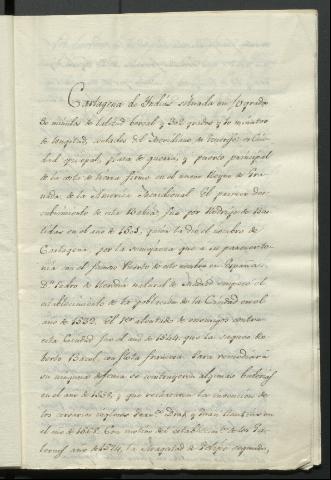 Cartagena de Indias situada en 10 grados
30 minutos de latitud boreal y 302 grados y 10 minutos
de longitud, contados del Meridiano de Tenerife, es Ciu-
dad episcopal, plaza de guerra, y puerto principal
de la costa de tierra firme en el nuevo Reyno de Gra-
nada de la America Meridional. El primer des-
cubrimiento de esta Bahia fue por Rodrigo de Bas-
tidas en el año de quien la dio el nombre de
Cartagena por la semejanza que a su parecer te-
nia con el famoso Puerto de este nombre en España.
Dn. Pedro de Heredia natural de Madrid empezó el
establecimiento de la poblacion de la Ciudad en el
año de 1532. El 1er. atentado de enemigos contra
esta Ciudad fue el año de 1544 que la saqueo Ro-
berto Baal con flota francesa. Para remediar
su ninguna defensa se construyeron algunos baluartes
en el año de y que rechazaron la invasion de
los corsarios ingleses Franco. Drak, y Juan en
el año de 1568. Con motivo del establecimto. de los Ga-
leones año de 1574, la Magestad de Felipe segundo,